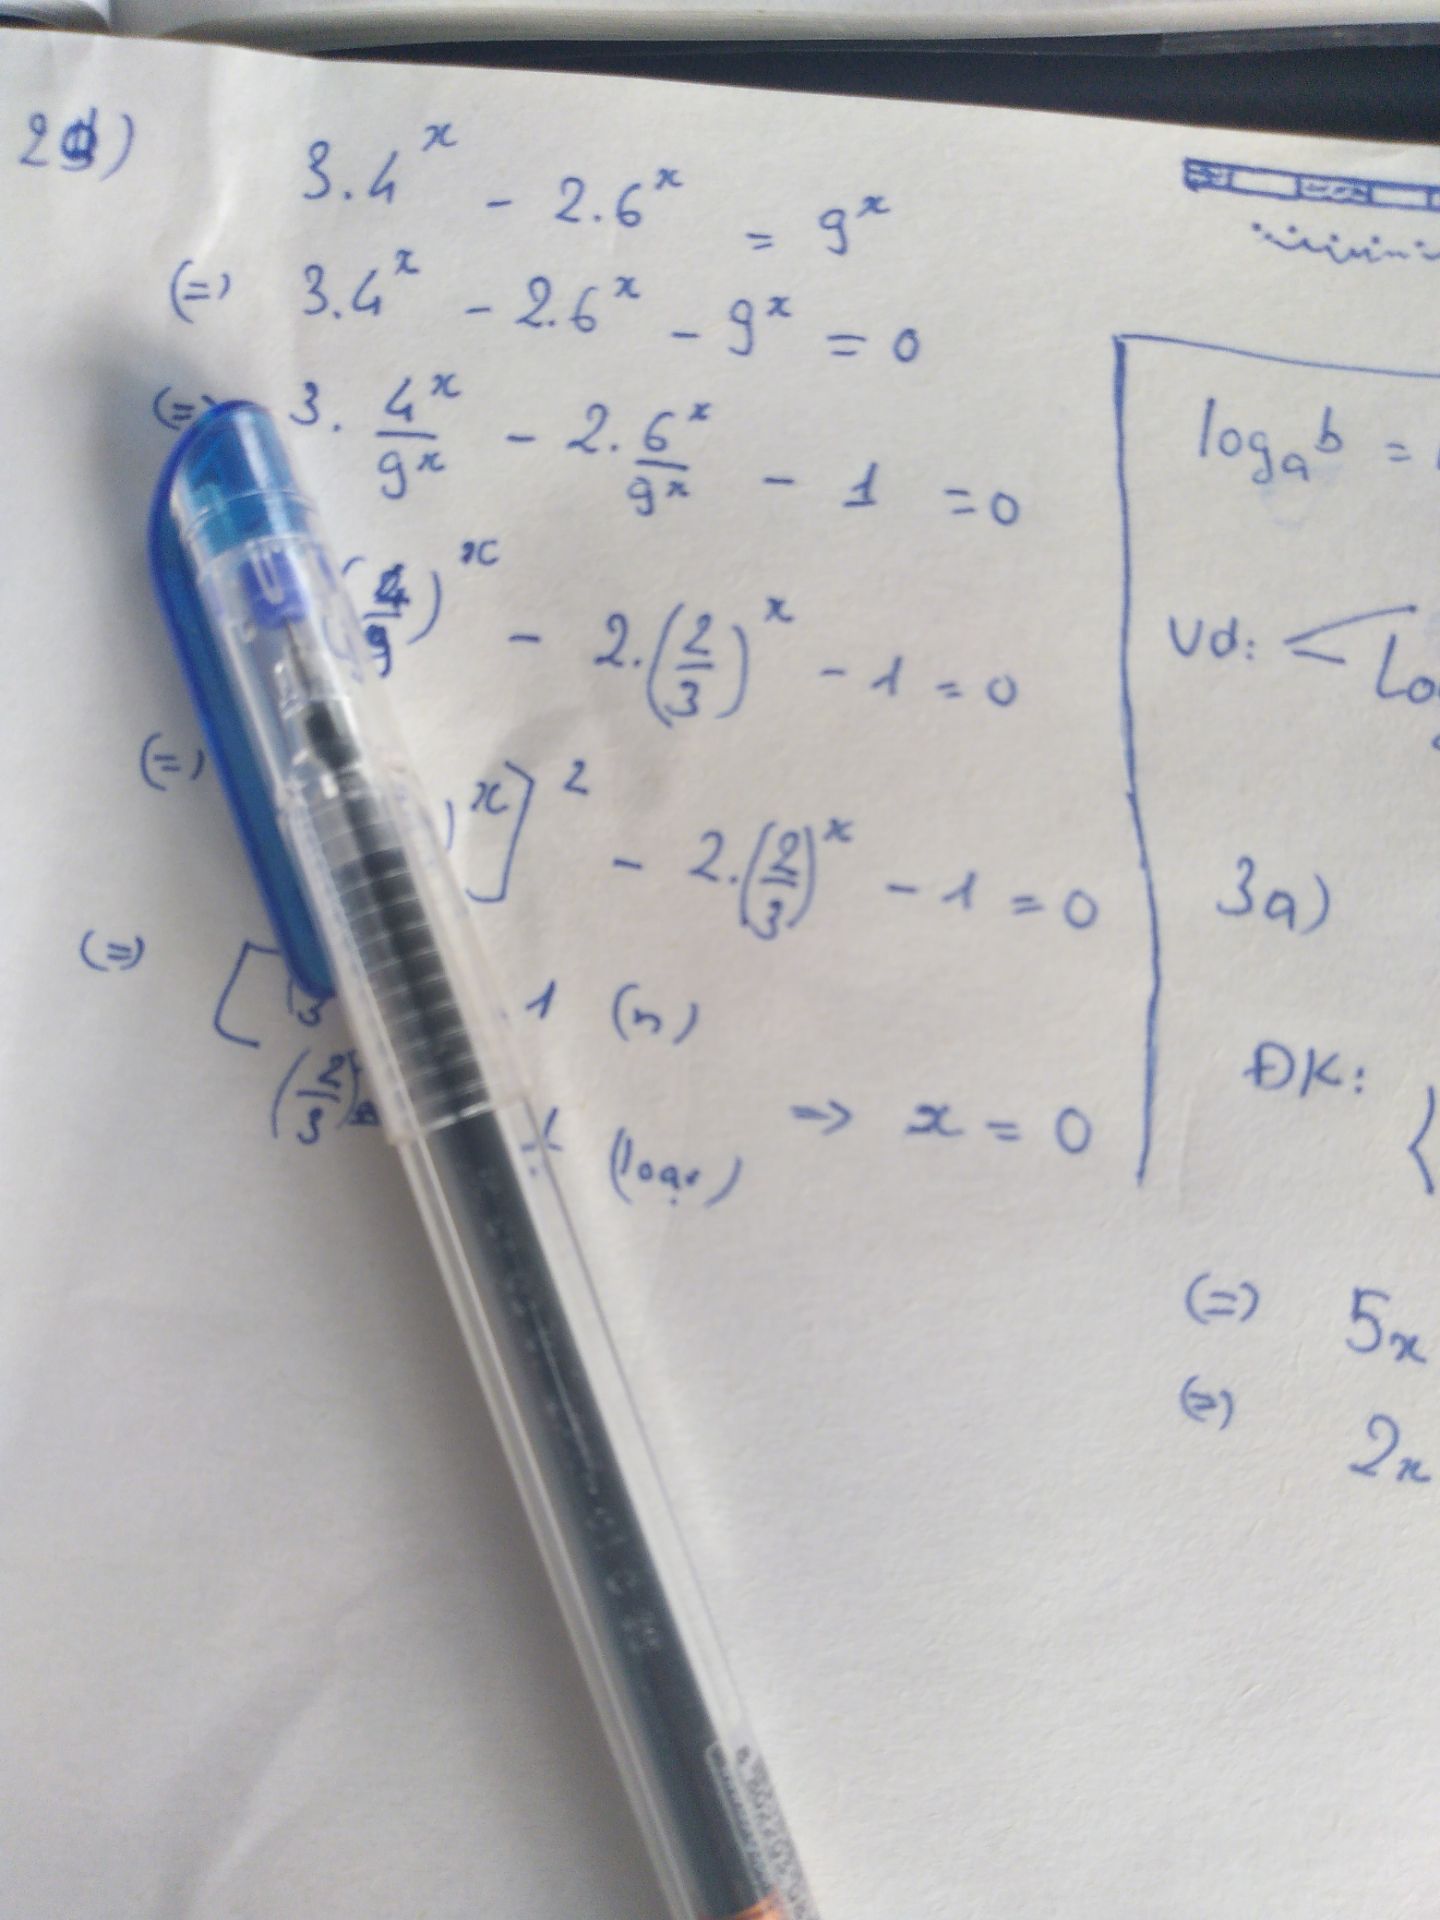 2d)
3.4^x - 2.6^x = 9^x
(=) 3.4^x - 2.6^x - 9^x = 0
(=) 3. 4^x/9^x - 2. 6^x/9^x - 1 = 0
(4/9)^x - 2.(2/3)^x - 1 = 0
(=) )^x]^2 - 2.(2/3)^x - 1 = 0
(=) [ 1 (n)
(2/3) (loại) => x = 0
log_a b =
Vd: <
3a)
ĐK: {
(=) 5x
(=) 2x